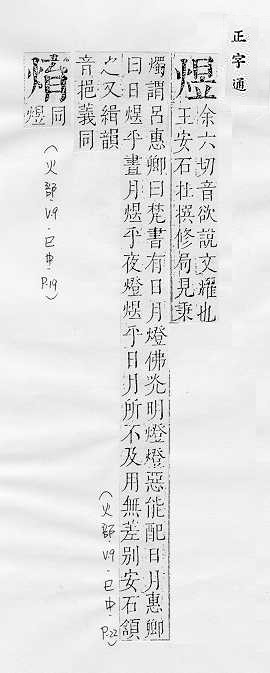 正字通
煜
余六切音欲說文燿也
王安石在撰修局見秉
燭謂呂惠卿曰梵書有日月燈佛光明燈燈惡能配日月惠卿
曰日煜乎晝月煜乎夜燈煜乎日月所不及用無差別安石頷
之又緝韻
音挹義同
(火部 V.9.巳中.P.22)
焴
同
煜
(火部 V.9.巳中.P.19)